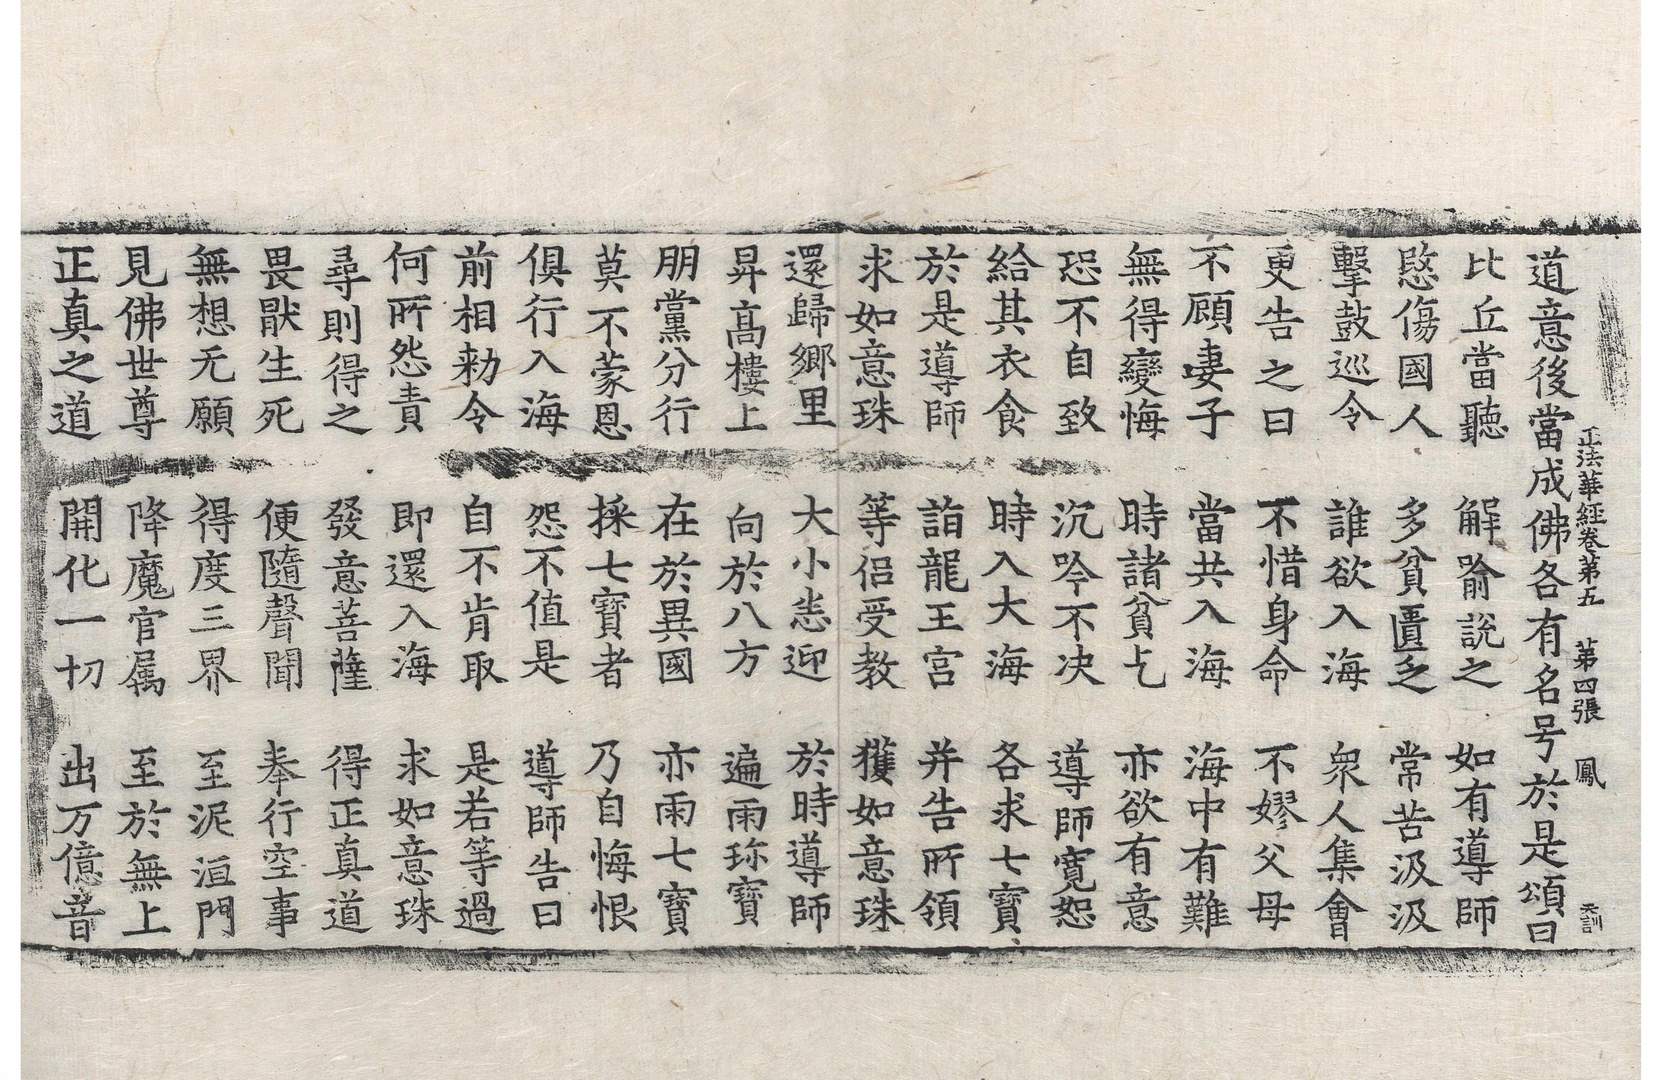 正法華經卷第五 第四張 鳳 天訓
道意後當成佛各有名号於是頌曰
比丘當聽 解喻說之 如有導師
愍傷國人 多貧匱乏 常苦汲汲
擊鼓巡令 誰欲入海 衆人集會
更告之曰 不惜身命 不嫪父母
不顧妻子 當共入海 海中有難
無得變悔 時諸貧乞 亦欲有意
恐不自致 沉吟不决 導師寬恕
給其衣食 時入大海 各求七寶
於是導師 詣龍王宮 并告所領
求如意珠 等侶受教 獲如意珠
還歸鄉里 大小恙迎 於時導師
昇髙樓上 向於八方 遍雨珎寶
朋黨分行 在於異國 亦雨七寶
莫不蒙恩 採七寶者 乃自悔恨
俱行入海 怨不值是 導師告曰
前相勑令 自不肯取 是若等過
何所怨責 即還入海 求如意珠
尋則得之 發意菩薩 得正真道
畏猒生死 便隨聲聞 奉行空事
無想无願 得度三界 至泥洹門
見佛世尊 降魔官属 至於無上
正真之道 開化一切 出万億音